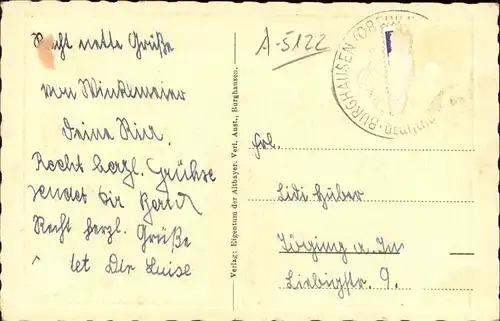 Recht nette Grüße
von Winklmeier
Deine Ria.
Recht herzl. Grüße
sendet dir
Recht herzl. Grüße
Luise
Verlag: Eigentum der Altbayer. Verl. Anst., Burghausen.
A-5122
BURGHAUSEN (OBB
Frl.
Lidi Huber
Töging a. Inn
Liebigstr. 9.